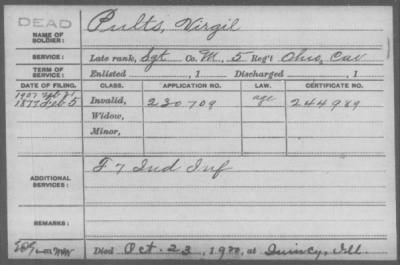 DEAD
NAME OF SOLDIER: Pults, Virgil
SERVICE: Late rank, Sgt Co. M, 5 Reg't Ohio, Cav
TERM OF SERVICE: Enlisted , 1 Discharged , 1
DATE OF FILING. CLASS. APPLICATION NO. LAW. CERTIFICATE NO.
1907 Feb 21
1877 Feb 5 Invalid, 230709 age 244989
Widow,
Minor,
ADDITIONAL SERVICES: F 7 Ind Inf
REMARKS:
Died Oct. 23, 1920, at Quincy, Ill.